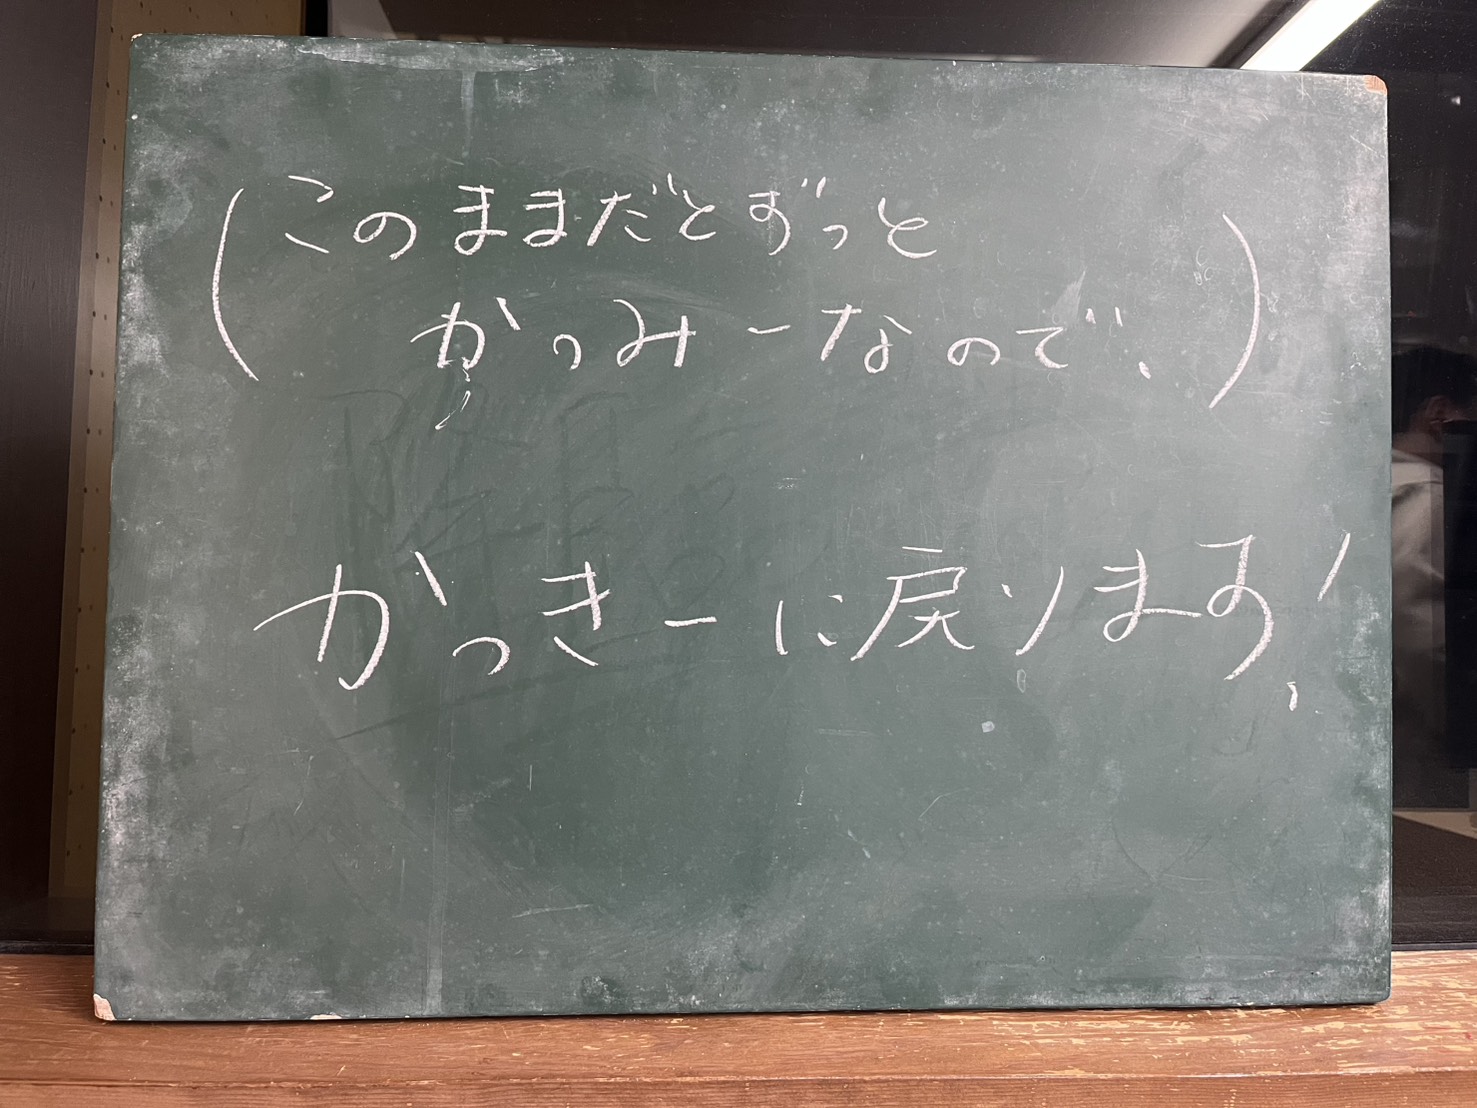 (このままだとずっと
かっみーなので、)
かっきーに戻ります!